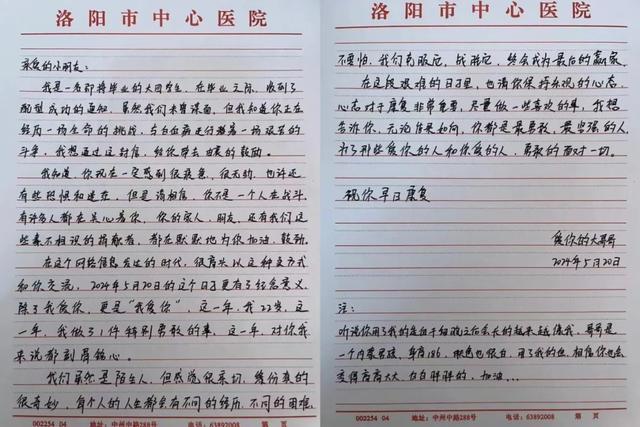 洛阳市中心医院
亲爱的小朋友：
我是一名即将毕业的大四学生，在毕业之际，收到了
配型成功的通知，虽然我们未曾谋面，但我知道你正在
经历一场生命的挑战，与白血病进行着一场艰苦的
斗争，我想通过这封信，给你带去由衷的鼓励。
我知道，你现在一定感到很疲惫，很无助，也许还
有些恐惧和迷茫，但是请相信，你不是一个人在战斗，
有许多人都在关心着你，你的家人，朋友，还有我们这
些素不相识的捐献者，都在默默地为你加油，鼓励。
在这个网络信息发达的时代，很高兴以这种方式
和你交流，2024年5月20日的这个日子更有了纪念意义
除了我爱你，更是“我爱你”，这一年，我22岁，这
一年，我做了1件特别勇敢的事，这一年，对你我
来说都刻骨铭心。
我们虽然是陌生人，但感觉很亲切，缘份真的
很奇妙，每个人的人生都会有不同的经历，不同的困难，
002254 04 地址：中州中路288号 电话：63892008 第 页
洛阳市中心医院
不要怕，我们克服它，战胜它，终会成为最后的赢家。
在这段艰难的日子里，也请你保持乐观的心态，
心态对于康复非常重要，尽量做一些喜欢的事，我想
告诉你，无论结果如何，你都是最勇敢，最坚强的人，
为了那些爱你的人和你爱的人，勇敢的面对一切。
祝你早日康复
爱你的大哥哥
2024年5月20日
注：
听说你用了我的造血干细胞之后会长的越来越像我，哥哥是
一个内蒙男孩，身高186，肤色也很白，用了我的血，相信你也会
变得高高大大，白白胖胖的，加油...
002254 04 地址：中州中路288号 电话：63892008 第 页